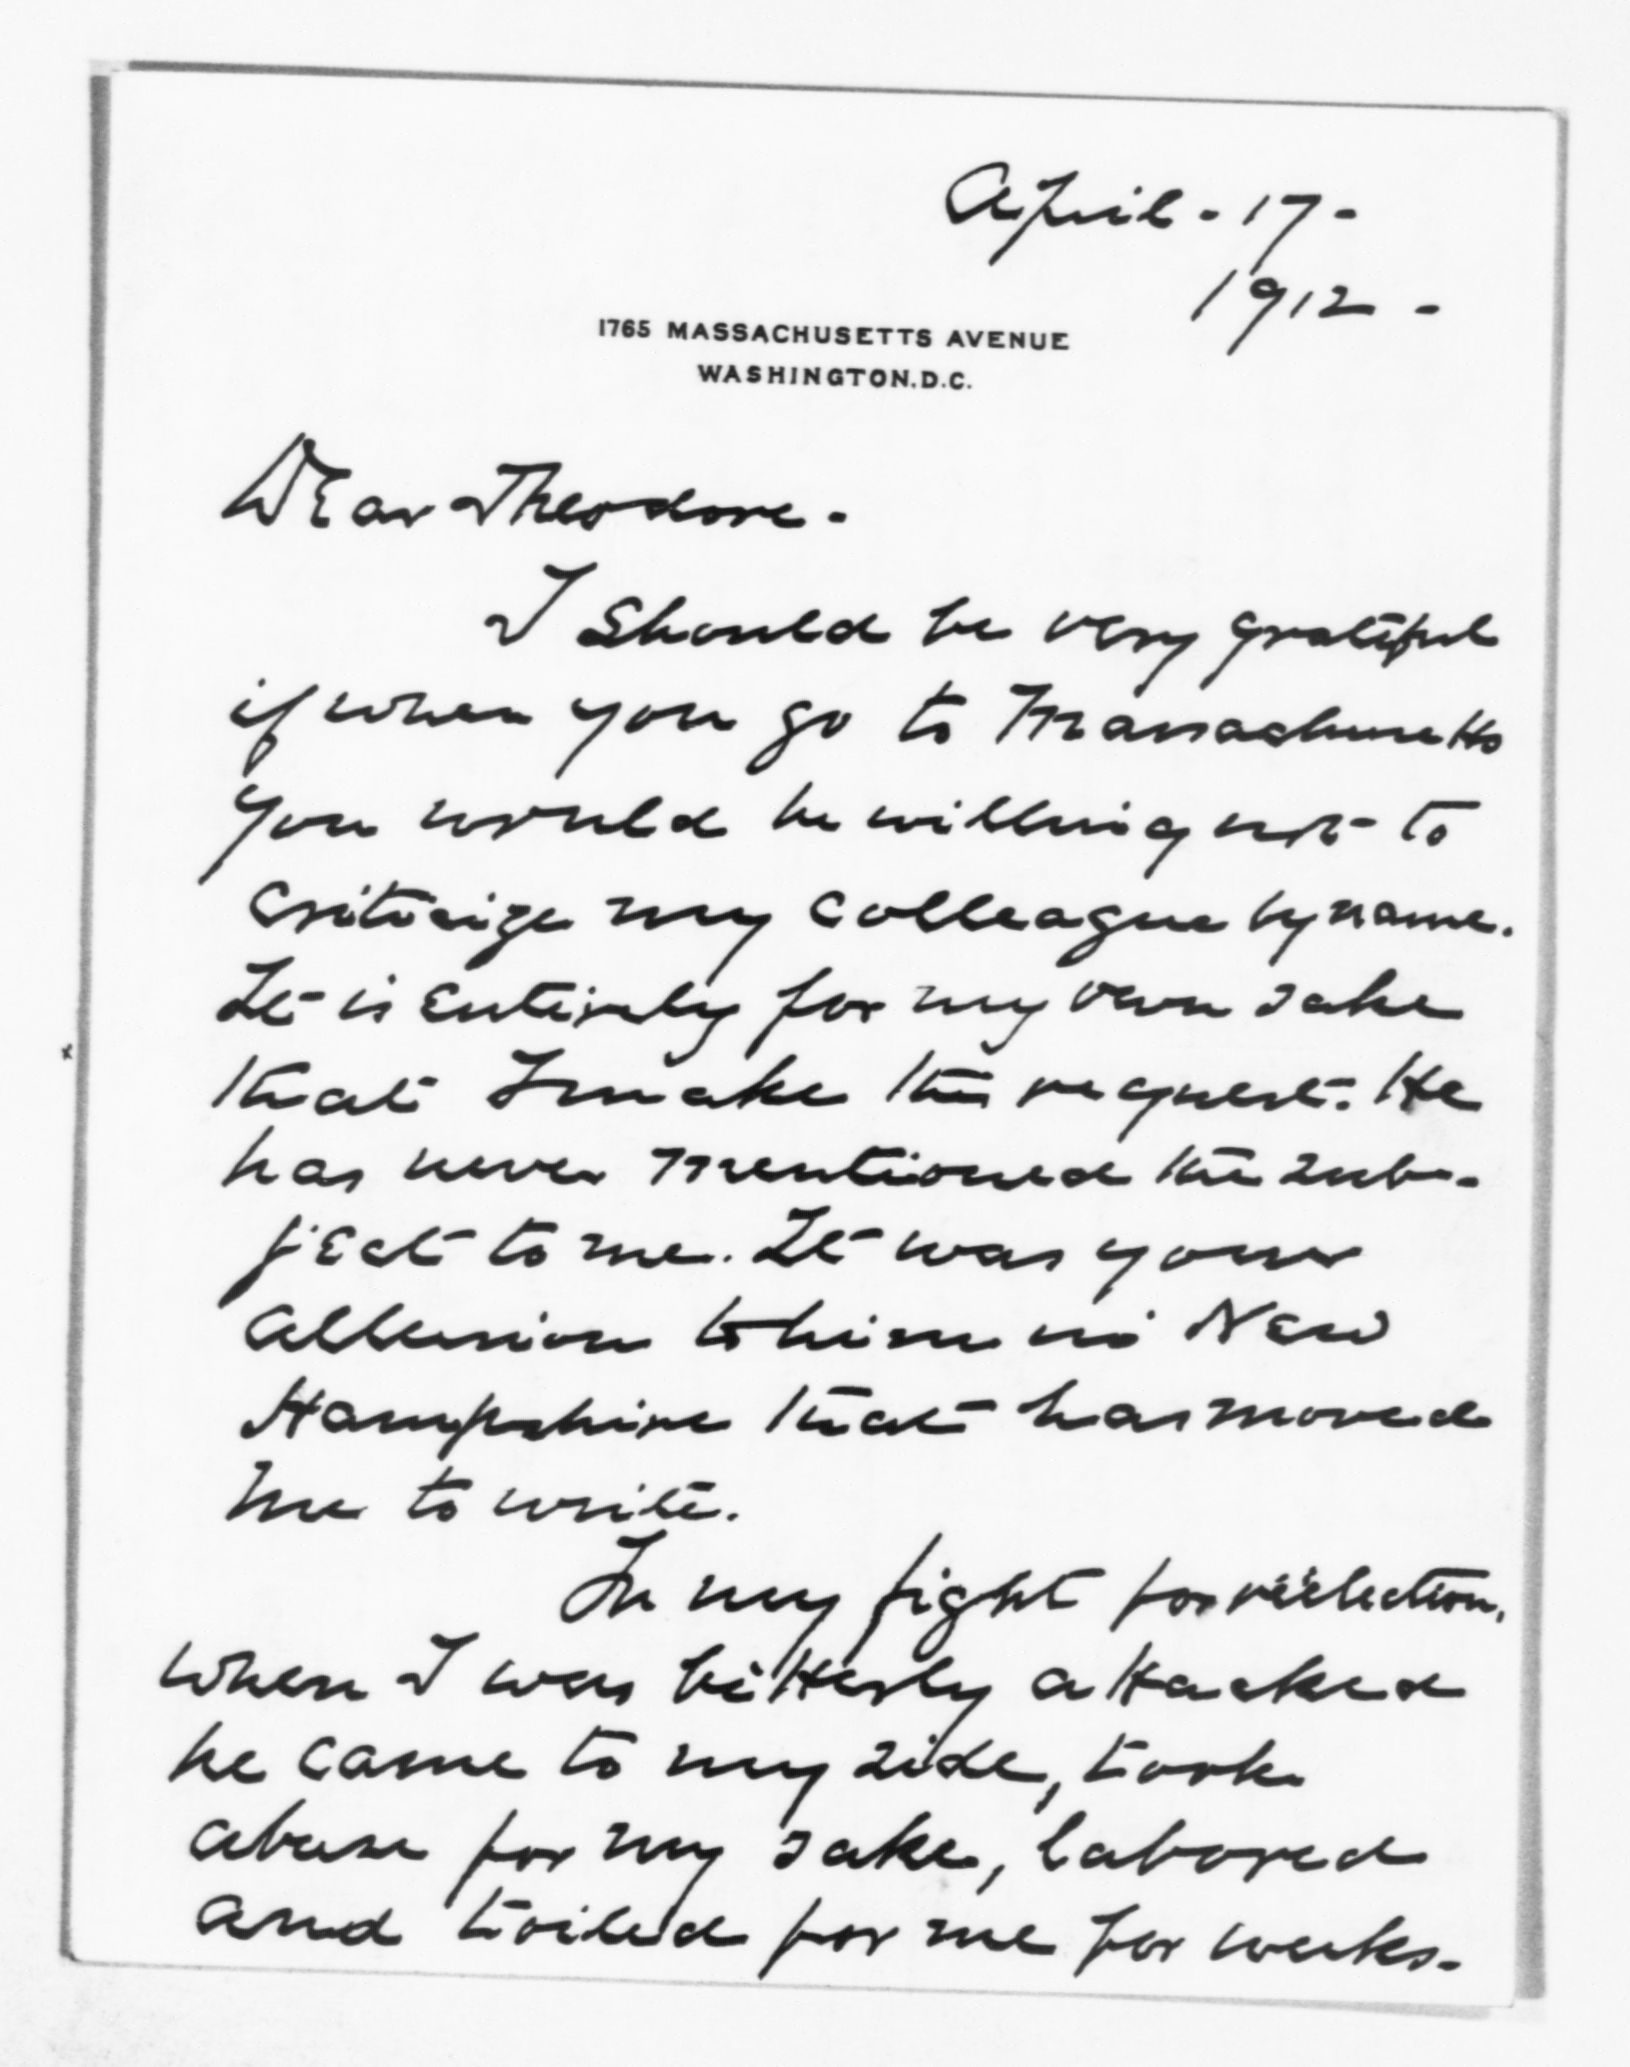 April - 17 -
1912 -
1765 MASSACHUSETTS AVENUE
WASHINGTON. D. C.
Dear Theodore -
I should be very grateful
if when you go to Massachusetts
you would be willing not to
criticize my colleague by name.
It is entirely for my own sake
that I make this request. He
has never mentioned the sub-
ject to me. It was your
allusion to him in New
Hampshire that has moved
me to write.
In my fight for reëlection,
when I was bitterly attacked
he came to my side, took
abuse for my sake, labored
and toiled for me for weeks.